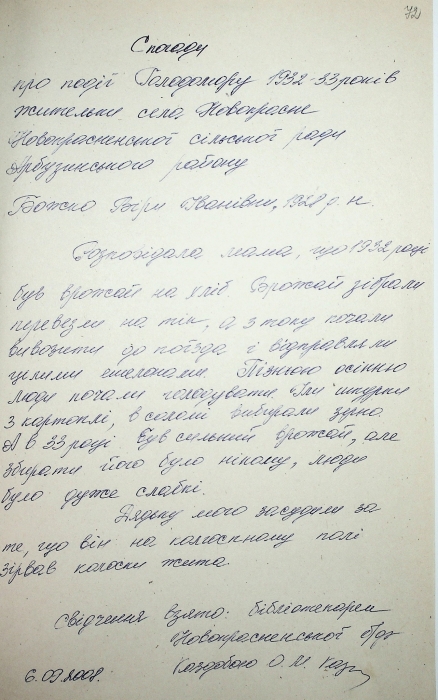 72
Спогади
про події Голодомору 1932-33 років
жительки села Новокрасне
Новокрасненської сільської ради
Арбузинського району
Божко Віри Іванівни, 1928 р. н.
Розповідала мама, що 1932 році
був врожай на хліб. Врожай зібрали
перевезли на тік, а з току почали
вивозити до поїзда і відправляли
цілими ешелонами. Пізньою осінню
люди почали голодувати. Їли шкурки
з картоплі, в соломі вибирали зерно.
А в 33 році був сильний врожай, але
збирати його було нікому, люди
були дуже слабкі.
Дядьку мого засудили за
те, що він на колгоспному полі
зірвав колоски жита.
Свідчення взято: бібліотекарем
Новокрасненської
О. М.
6.09.2008.